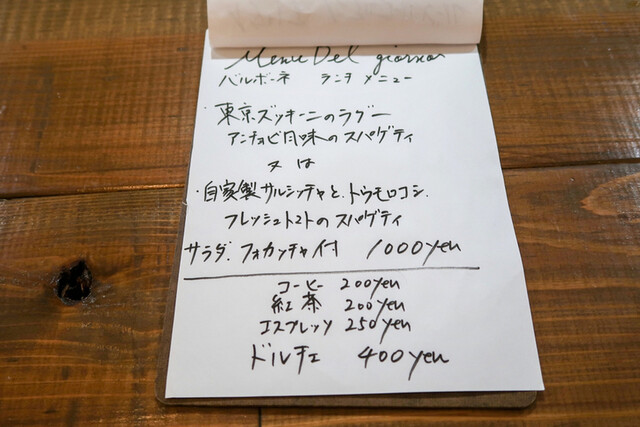 Menu Del giorno
バルボーネ ランチ メニュー
・東京ズッキーニのラグー
アンチョビ風味のスパゲティ
又は
・自家製サルシッチャと、トウモロコシ、
フレッシュトマトのスパゲティ
サラダ、フォカッチャ付 1000yen
コーヒー 200yen
紅茶 200yen
エスプレッソ 250yen
ドルチェ 400yen